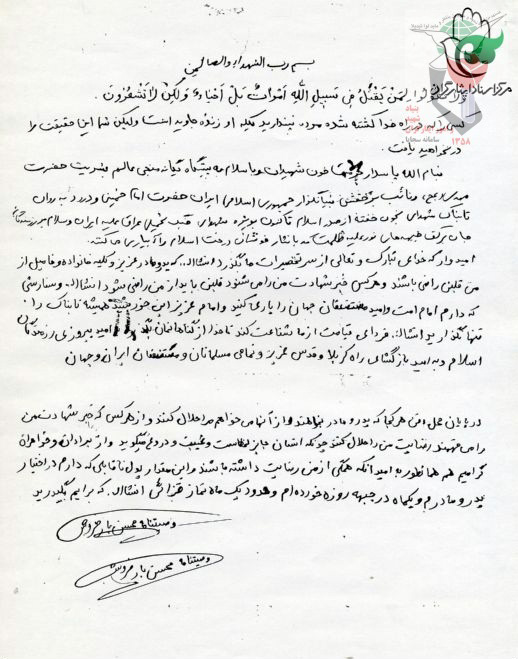 مرکز اسناد ایثارگران
بنیاد شهید و امور ایثارگران
سامانه سجایا
۱۳۵۸
بسم رب الشهداء والصالحین
ولا تقولوا لمن یقتل فی سبیل الله اموات بل احیاء ولکن لا تشعرون.
کسی را که در راه خدا کشته شده مرده نپندارید بلکه او زنده جاوید است ولیکن شما این حقیقت را
در نخواهید یافت.
بنام الله پاسدار خون شهیدان و با سلام به پیشگاه یگانه منجی عالم بشریت حضرت
مهدی (عج) و نائب برحقش بنیانگذار جمهوری اسلامی ایران حضرت امام خمینی و درود به روان
تابناک شهدای بخون خفته از صدر اسلام تا کنون بویژه شهدای جنگ تحمیلی عراق علیه ایران و سلام بر رزمندگان
جان برکف جبهه‌های نور علیه ظلمت که با نثار خونشان درخت اسلام را آبیاری می‌کنند.
امیدوارم که خدای تبارک و تعالی از سر تقصیرات ما بگذرد انشاالله که پدر و مادر عزیز و کلیه خانواده و فامیل از
من قلبی راضی باشند و هرکس خبر شهادت من را می‌شنود قلبی باید از من راضی شود انشاالله و سفارشی
که دارم امام امت و امید مستضعفان جهان را یاری کنند و امام عزیز این خورشید همیشه تابناک را
تنها نگذارید انشاالله فردای قیامت از ما شفاعت کند تا خدا از گناهانمان بگذرد به امید پیروزی رزمندگان
اسلام و به امید بازگشای راه کربلا و قدس عزیز و تمامی مسلمانان و مستضعفان ایران و جهان
در پایان عمل افی هر کجا که پدر و مادر بخواهند و از آنها می‌خواهم مرا حلال کنند و از هر کس که خبر شهادت من
را می‌فهمند رضایت من را حلال کنند چونکه انسان جایز الخطاست و غیبت و دروغ میگوید و از برادران و خواهران
گرامیم هم همانطور به امید آنکه همگی از من رضایت داشته باشند و این مقدار پول ناقابلی که دارم در اختیار
پدر و مادرم و یکماه در جبهه روزه خورده‌ام و حدود یک ماه نماز قزائی انشاالله که برایم بگیرید
وصیتنامه محسن
وصیتنامه محسن